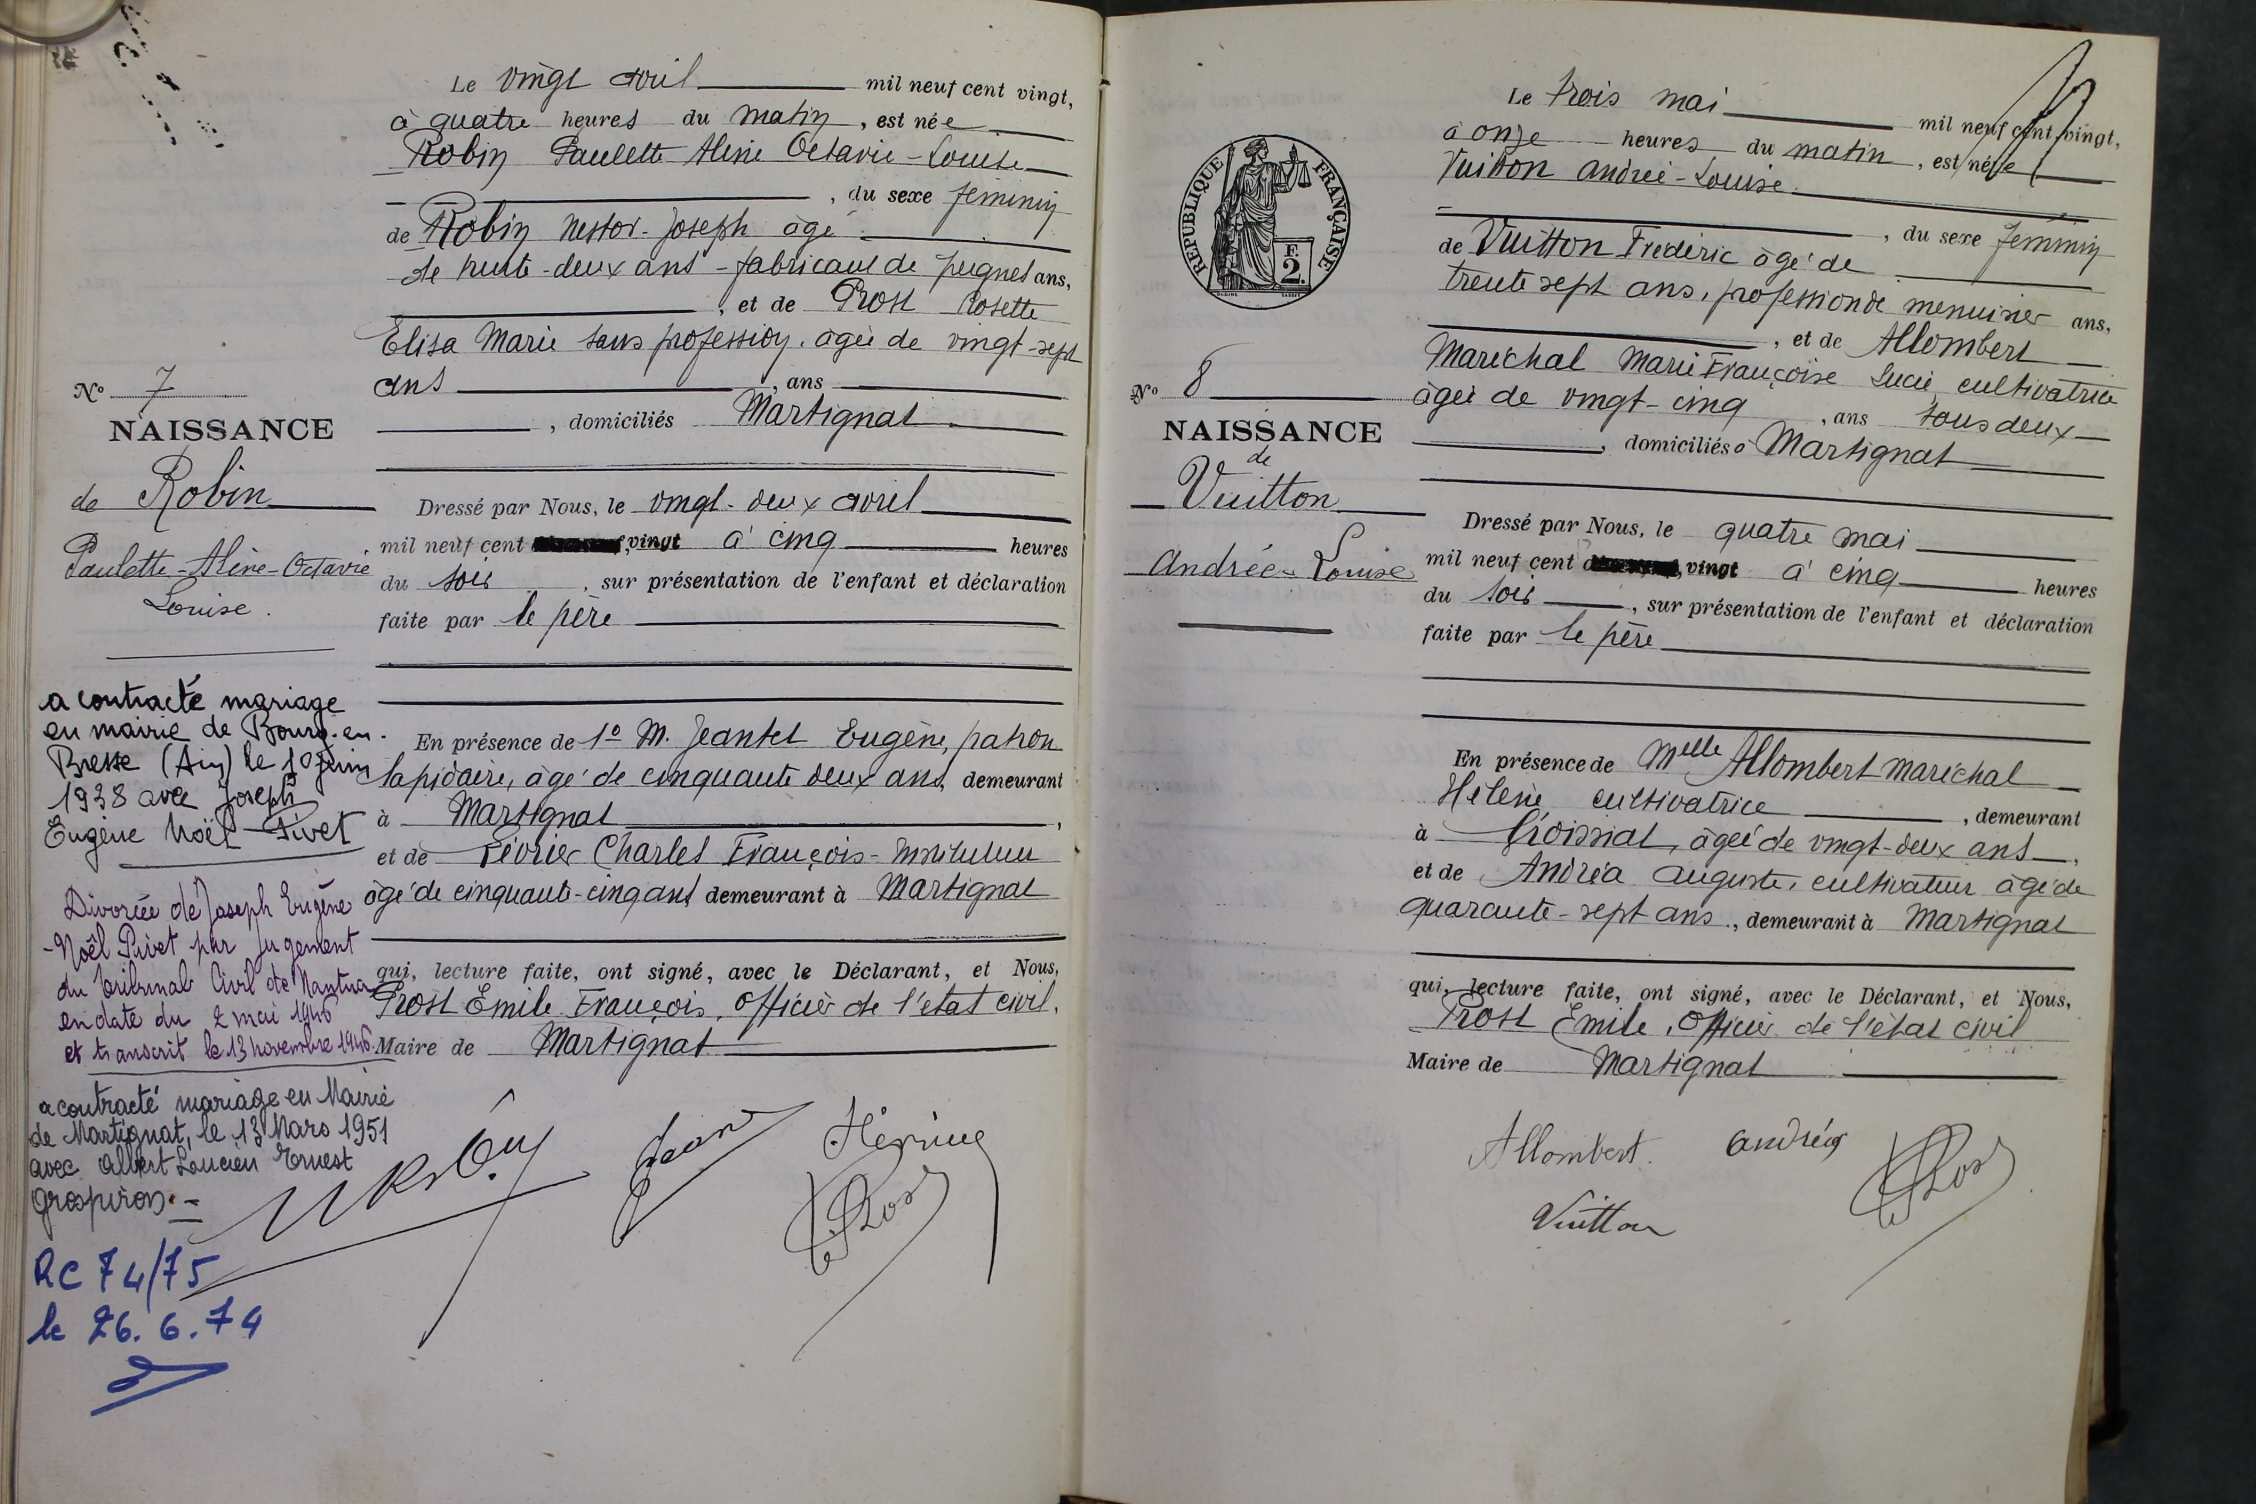 Le vingt avril mil neuf cent vingt,
à quatre heures du matin, est née
Robin Paulette Aline Octavie-Louise
, du sexe féminin
de Robin Nestor-Joseph âgé
de trente-deux ans - fabricant de peignes ans,
, et de Prost Rosette
Elisa Marie sans profession, âgée de vingt-sept
ans , ans
, domiciliés Martignat
Nº 7
NAISSANCE
de Robin
Paulette-Aline-Octavie
Louise.
Dressé par Nous, le vingt-deux avril
mil neuf cent vingt à cinq heures
du soir, sur présentation de l'enfant et déclaration
faite par le père
En présence de 1º M. Jeantet Eugène, patron
lapidaire, âgé de cinquante deux ans, demeurant
à Martignat,
et de Février Charles François - Instituteur
âgé de cinquante-cinq ans demeurant à Martignat
qui, lecture faite, ont signé, avec le Déclarant, et Nous,
Prost Emile François, Officier de l'état civil,
Maire de Martignat
a contracté mariage
en mairie de Bourg-en-
Bresse (Ain) le 10 juin
1938 avec Joseph
Eugène Noël Pivet
Divorcée de Joseph Eugène
-Noël Pivet par jugement
du tribunal Civil de Nantua
en date du 2 mai 1946
et transcrit le 13 novembre 1946.
a contracté mariage en Mairie
de Martignat, le 13 Mars 1951
avec Albert Lucien Ernest
Grospiron.=
RC 74/75
le 26.6.74
Prost
Le trois mai mil neuf cent vingt,
à onze heures du matin, est née
Vuitton andrée-Louise
, du sexe féminin
de Vuitton Frédéric âgé de
trente sept ans, profession de menuisier ans,
, et de Allombert
Maréchal Marie Françoise Lucie, cultivatrice
âgée de vingt-cinq, ans tous deux
, domiciliés à Martignat
RÉPUBLIQUE FRANÇAISE
F.
2.
Nº 8
NAISSANCE
de
Vuitton
Andrée-Louise
Dressé par Nous, le quatre mai
mil neuf cent vingt à cinq heures
du soir, sur présentation de l'enfant et déclaration
faite par le père
En présence de Melle Allombert maréchal
Hélène cultivatrice, demeurant
à Groissiat, âgée de vingt-deux ans,
et de Andréa auguste, cultivateur âgé de
quarante-sept ans., demeurant à Martignat
qui, lecture faite, ont signé, avec le Déclarant, et Nous,
Prost Emile, Officier de l'état civil
Maire de Martignat
Allombert andréa
Prost
Vuitton